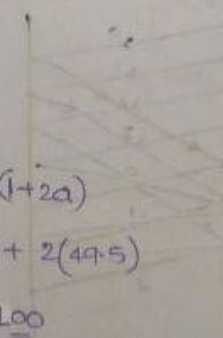 (1+2a)
+ 2(49.5)
100